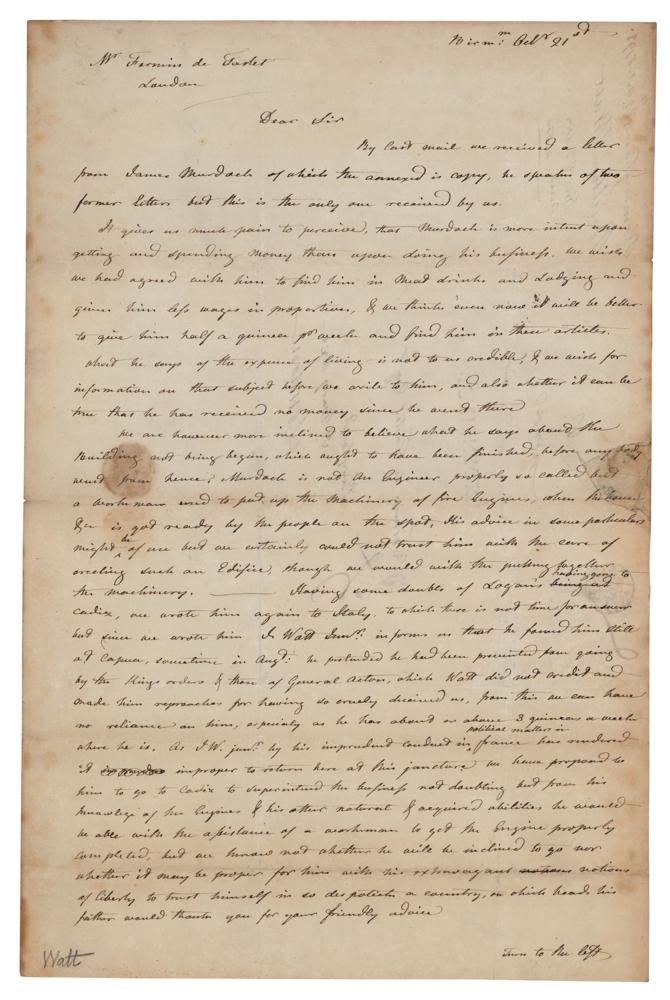 Birm.m Octr 21st
Mr Fermin de Tastet
London
Dear Sir
By last mail we received a letter
from James Murdach of which the annexed is copy, he speaks of two
former letters but this is the only one received by us.
It gives us much pain to perceive, that Murdach is more intent upon
getting and spending money than upon doing his business. We wish
we had agreed with him to find him in meat drink and Lodging and
given him less wages in proportion, & we think even now it will be better
to give him half a guinea pr week and find him in these articles.
What he says of the expence of living is not to us credible, & we wish for
information on that subject before we write to him, and also whether it can be
true that he has received no money since he went there
We are however more inclined to believe what he says about the
Building not being begun, which ought to have been finished, before any body
went from hence; Murdach is not an Engineer properly so called but
a workman used to put up the Machinery of fire Engines, when the
&c is got ready by the people on the spot, His advice in some particulars
might be of use but we certainly would not trust him with the care of
erecting such an Edifice, though we would with the putting together
the machinery. Having some doubts of Logan's being at having gone to
Cadiz, we wrote him again to Italy, to which there is not time for answer
but since we wrote him Js Watt Junr: informs us that he found him still
at Capua, sometime in Augt: he pretended he had been prevented from going
by the Kings orders & those of General Acton, which Watt did not credit and
made him reproaches for having so cruely deceived us, from this we can have
no reliance on him, especialy as he has about or above 3 guineas a week
where he is. As J W. junr by his imprudent conduct in political matters in france has rendered
it improper to return here at this juncture we have proposed to
him to go to Cadiz to superintend the business not doubting but from his
knowlege of the Engines & his other natural & acquired abilities he would
be able with the assistance of a workman to get the Engine properly
compleated, but we know not whether he will be inclined to go nor
whether it may be proper for him with his extravagant notions
of liberty to trust himself in so despotick a country, on which heads his
father would thank you for your friendly advice
Turn to the left
Watt